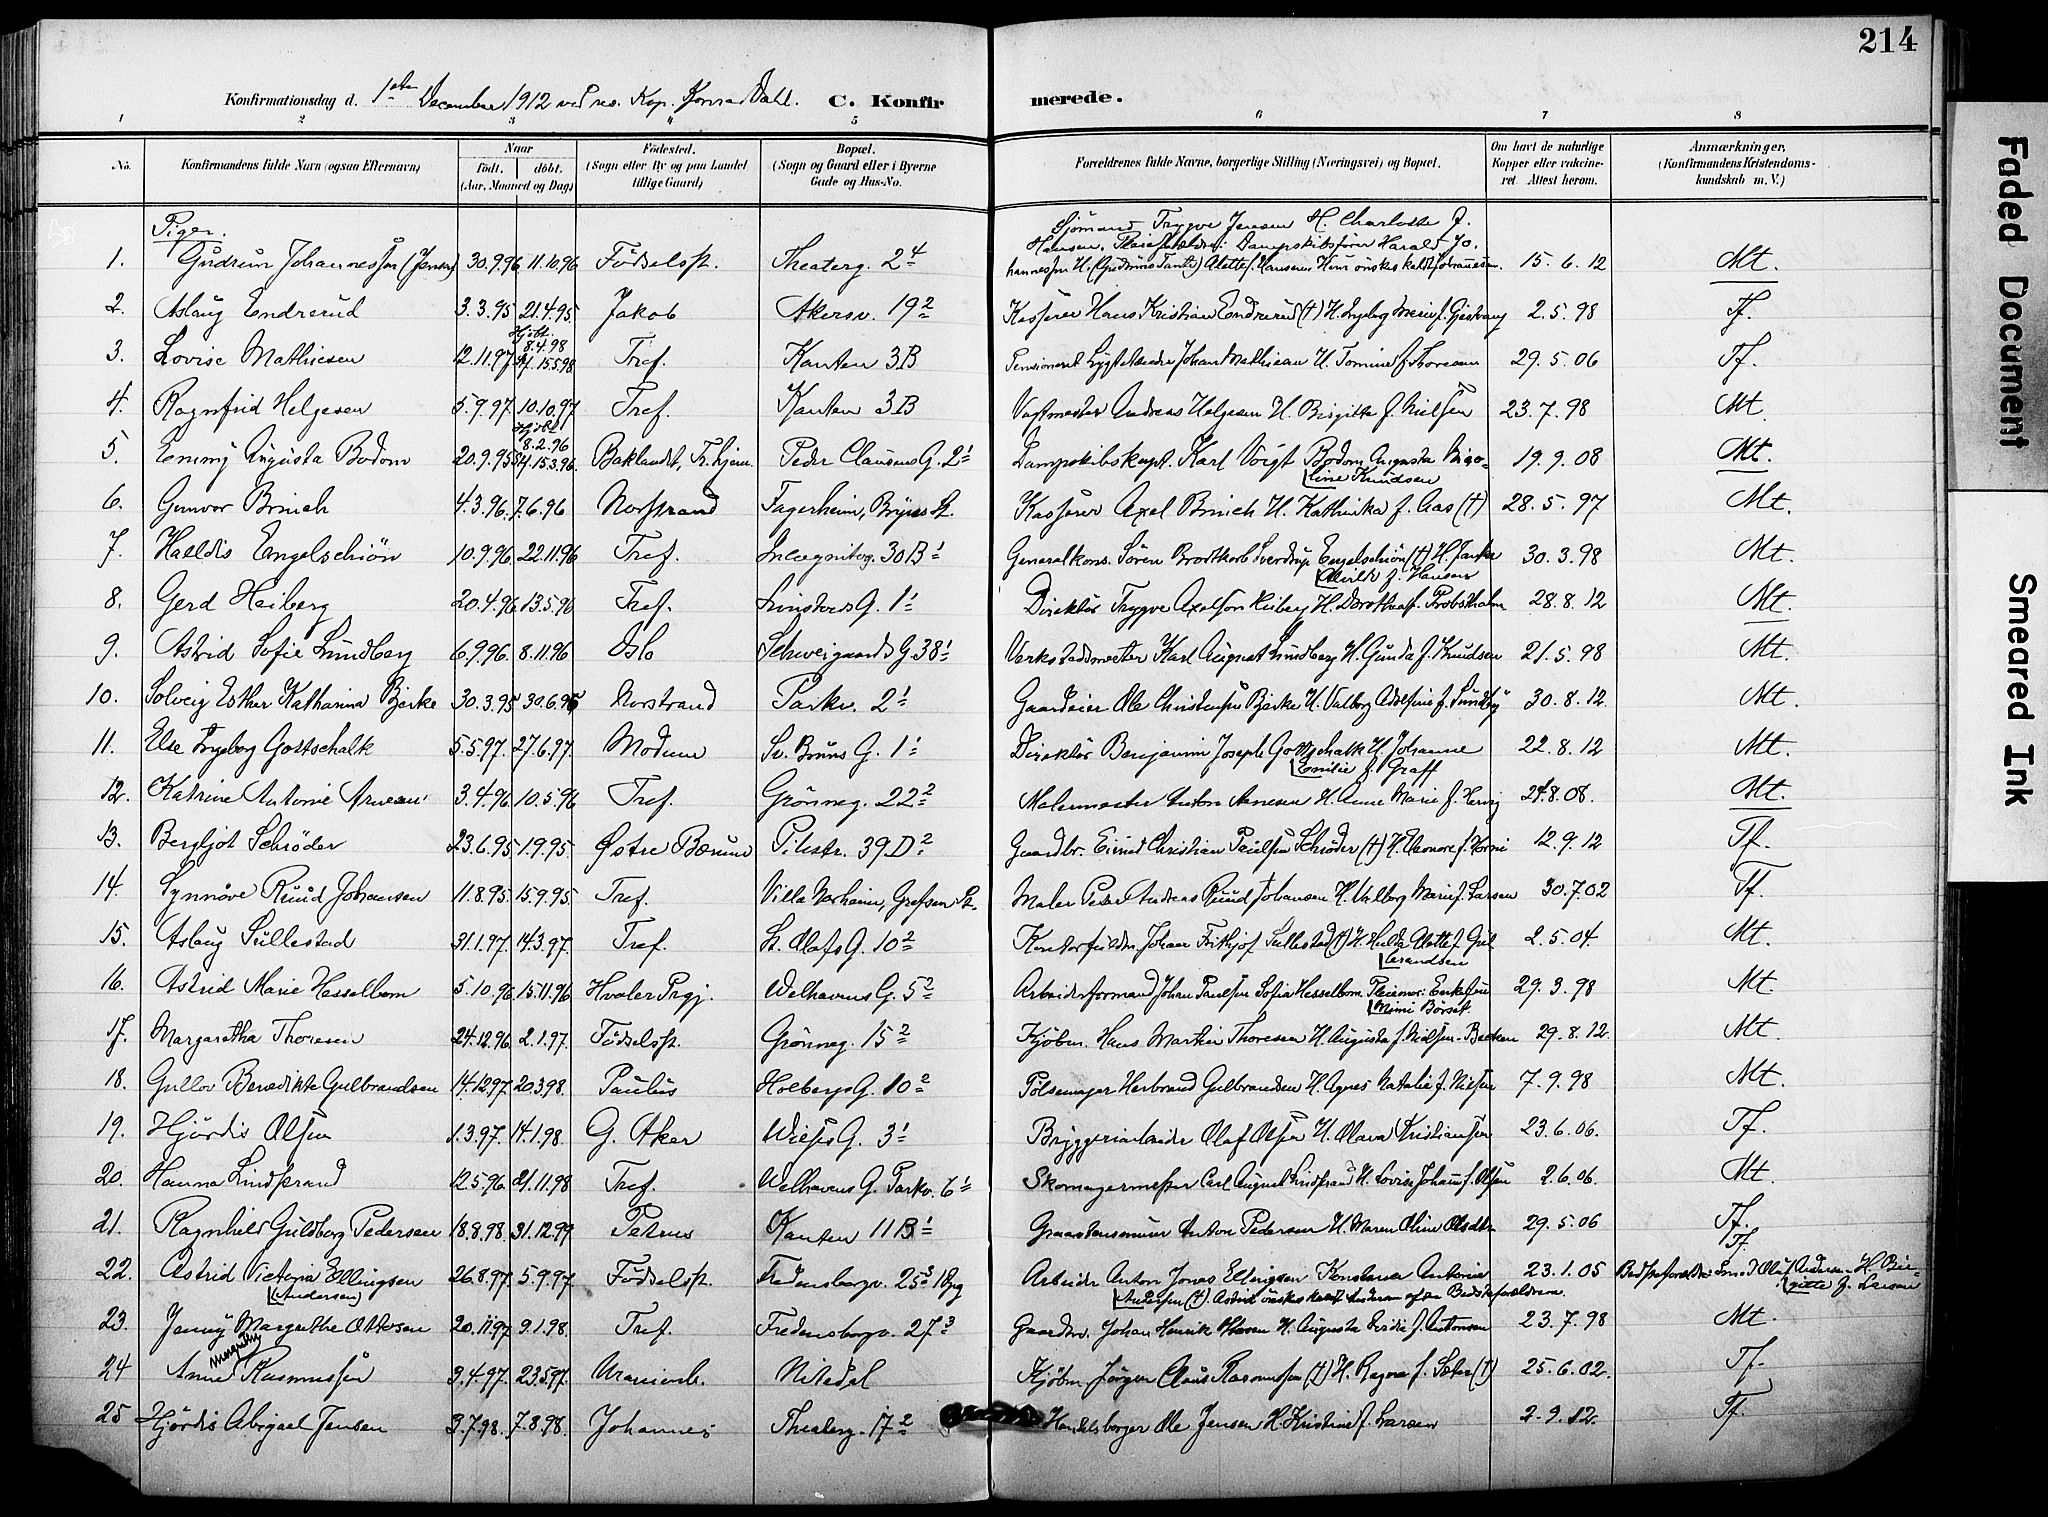 214
Konfirmationsdag d. 1ste December 1912 ved res. Kap. Konrad Dahl. C. Konfirmerede.
1 2 3 4 5 6 7 8
No. Konfirmandens fulde Navn (ogsaa Efternavn) Naar født. døbt. (Aar, Maaned og Dag) Fødested. (Sogn eller By og paa Landet tillige Gaard) Bopæl. (Sogn og Gaard eller i Byerne Gade og Hus-No. Forældrenes fulde Navne, borgerlige Stilling (Næringsvei) og Bopæl. Om havt de naturlige Kopper eller vakcineret Attest herom. Anmærkninger, (Konfirmandens Kristendomskundskab m. V.)
Piger.
Sjömand Trygve Jensen H. Charlotte f.
Hansen. Pleieforældre: Dampskibsfører Harald Jo-
1. Gudrun Johannessen (Jensen) 30.9.96 11.10.96 Födselsst. Theaterg. 2 4 hannessen H. (Gudruns Tante) Alette f. Hansen. Hun ønskes kaldt Johannessen. 15.6.12 Mt.
2. Aslaug Endrerud 3.3.95 21.4.95. Jakob Akersv. 19 2 Kasserer Hans Kristian Endrerud (†) H. Ingeborg Marie f. Gjestvang 2.5.98 Tf.
Hjdbt. 8.4.98
3. Lovise Mathiesen 12.11.97 st. 15.5.98 Tref. Kanten 3B Pensioneret Lygtetænder Johan Mathiesen H. Tomine f. Thoresen 29.5.06 Tf.
4. Ragnfrid Helgesen 5.9.97 10.10.97 Tref. Kanten 3B Vagtmester Andreas Helgesen H. Birgitte f. Nielsen 23.7.98 Mt.
Hjdbt. 8.2.96
5. Emmy Augusta Bodom 20.9.95 st. 15.3.96. Baklandet, Tr.hjem. Peder Clausens G. 2 1 Dampskibskapt. Karl Voigt Bodom Augusta Nico- 19.9.08 Mt.
line Knudsen
6. Gunvor Brinch 4.3.96 7.6.96 Norstrand Fagerheim, Bryns St. Kasserer Axel Brinch H. Kathinka f. Aas (†) 28.5.97 Mt.
7. Haldis Engelschiön 10.9.96 22.11.96 Tref. Incognitog. 30B 1 Generalkons. Sören Brodtkorb Sverdrup Engelschiön (†) H. 30.3.98 Mt.
Alvilde f. Hansen
8. Gerd Heiberg 20.4.96 13.5.96 Tref. Linstows G. 1 1 Direktör Trygve Axelson Heiberg H. Dorothea f. Probsthahn 28.8.12 Mt.
9. Astrid Sofie Lundberg 6.9.96. 8.11.96 Oslo Schweigaards G. 38 1 Verkstedsmester Karl August Lundberg H. Gunda f. Knudsen 21.5.98 Mt.
10. Solveig Esther Katharina Bjerke 30.3.95 30.6.95 Norstrand Parkv. 2 1 Gaardeier Ole Christensen Bjerke H. Valborg Adolfine f. Sundby 30.8.12. Mt.
11. Else Ingeborg Gottschalk 5.5.97. 27.6.97. Modum Sv. Bruns G. 1 1 Direktör Benjamin Joseph Gottschalk H. Johanne 22.8.12 Mt.
Emilie f. Graff
12. Katrine Antonie Arnesen 3.4.96 10.5.96 Tref. Grönneg. 22 2 Malermester Anton Arnesen H. Anne Marie f. 24.8.08. Mt.
13. Bergljot Schröder 23.6.95 1.9.95. Østre Bærum Pilestr. 39D 2 Gaardbr. Eivind Christian Paulsen Schröder (†) H. Eleonore f. 12.9.12 Tf.
14. Synnöve Ruud Johansen 11.8.95. 15.9.95. Tref. Villa Norheim, Grefsen St. Maler Peder Andreas Ruud Johansen H. Valborg Marie f. Larsen 30.7.02 Tf.
15. Aslaug Sullestad 31.1.97. 14.3.97. Tref. St. Olafs G. 10 2 Kontorfuldm. Johan Frithjof Sullestad (†) H. Hulda Alette f. Gul- 2.5.04. Mt.
brandsen
16. Astrid Marie Hesselbom 5.10.96 15.11.96 Hvaler Prgj. Welhavens G. 5 2 Arbeidsformand Johan Paulsen Sofia Hesselbom. Pleiemor: Enkefru 29.3.98 Mt.
Mimi Börset.
17. Margaretha Thoresen 24.12.96. 2.1.97. Födselsst. Grönneg. 15 2 Kjöbm. Hans Martin Thoresen H. Augusta f. Nielsen-Backen 29.8.12. Mt.
18. Gullov Benedikte Gulbrandsen 14.12.97. 20.3.98. Paulus Holbergs G. 10 2 Pölsemager Herbrand Gulbrandsen H. Agnes Natalie f. Nielsen 7.9.98 Mt.
19. Hjördis Olsen 1.3.97. 14.1.98. G. Aker Wessels G. 3 1 Bryggeriarbeider Olaf Olsen H. Olava Kristiansen 23.6.06. Tf.
20. Hanna Lindstrand 12.5.96 21.11.98 Tref. Welhavens G. Parkv. 6 1 Skomagermester Carl August Lindstrand H. Lovise Johanne f. Olsen 2.6.06. Mt.
21. Ragnhild Guldborg Pedersen 18.8.98. 31.12.99 Petrus Kanten 11B 1 Graastensmurer Anton Pedersen H. Maren Oline Olsdtr. 29.5.06 Tf.
22. Astrid Victoria Ellingsen 26.8.97. 5.9.97. Födselsst. Fredensborgv. 25 3 Opg Arbeider Anton Jonas Ellingsen Konstanse Antonie 23.1.05 Tf. Bedsteforældre: Smed Oluf Andersen H. Bir-
(Andersen) Andersen (†). Astrid ønskes kaldt Andersen efter Bedsteforældrene. gitte f. Larsen
23. Jenny Margrethe Ottosen 20.11.97 9.1.98. Tref. Fredensborgv. 27 3 Gaardbr. Johan Henrik Ottosen H. Augusta f. Antonsen 23.7.98 Mt.
24 Anna Margrethe Rasmussen 3.4.97. 23.5.97. Uranienb. Nitedal Kjöbm. Jörgen Claus Rasmussen (†) H. Ragna f. Seter (†) 25.6.02. Tf.
25 Hjördis Abigael Jensen 3.7.98. 7.8.98. Johannes Theaterg. 17 2 Handelsborger Ole Jensen H. Kristine f. Larsen 2.9.12. Tf.
Faded Document
Smeared Ink